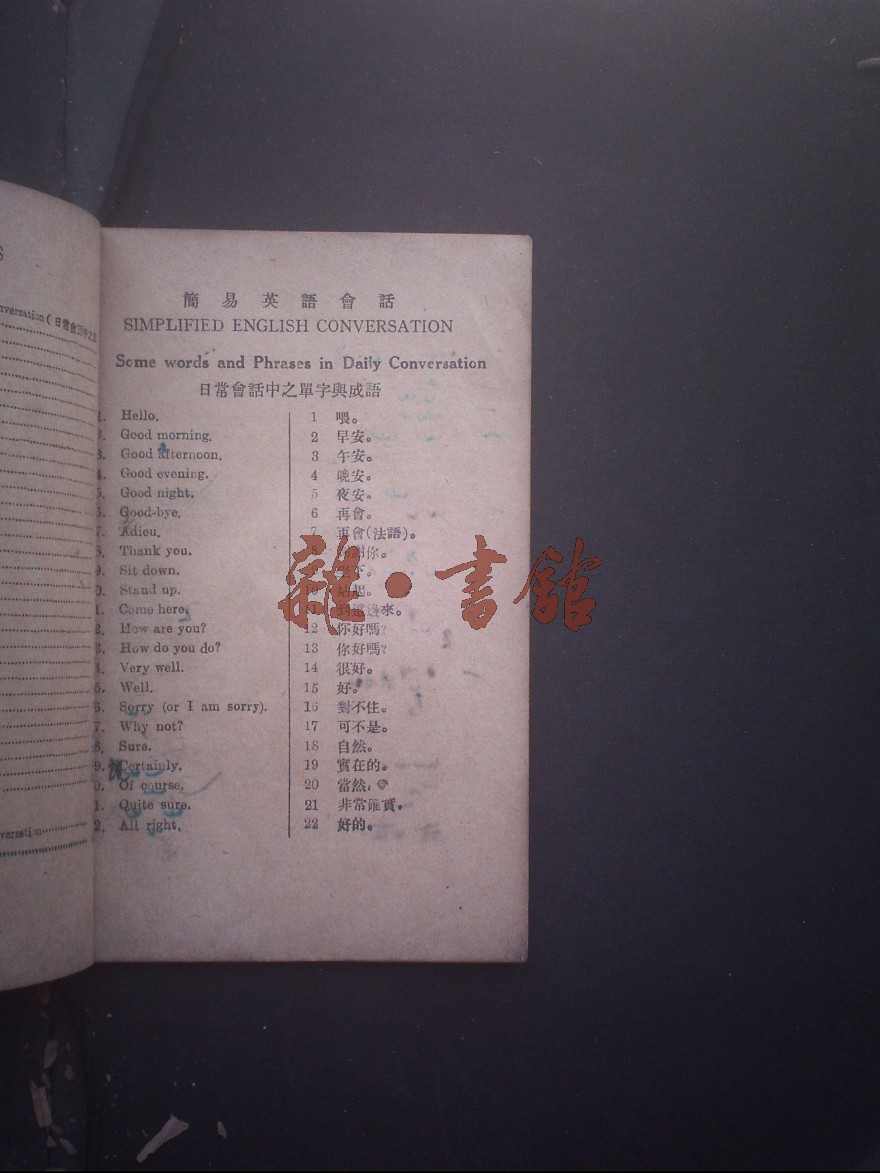 S
nversation (日常會話中之單
簡易英語會話
SIMPLIFIED ENGLISH CONVERSATION
Some words and Phrases in Daily Conversation
日常會話中之單字與成語
1. Hello. 1 喂。
2. Good morning. 2 早安。
3. Good afternoon. 3 午安。
4. Good evening. 4 晚安。
5. Good night. 5 夜安。
6. Good-bye. 6 再會。
7. Adieu. 7 再會(法語)。
8. Thank you. 8 謝你。
9. Sit down. 9 坐下。
0. Stand up. 10 站起。
1. Come here. 11 到這邊來。
2. How are you? 12 你好嗎?
3. How do you do? 13 你好嗎?
4. Very well. 14 很好。
5. Well. 15 好。
6. Sorry (or I am sorry). 16 對不住。
7. Why not? 17 可不是。
8. Sure. 18 自然。
9. Certainly. 19 實在的。
0. Of course. 20 當然。
1. Quite sure. 21 非常確實。
2. All right. 22 好的。
versation
雜·書館